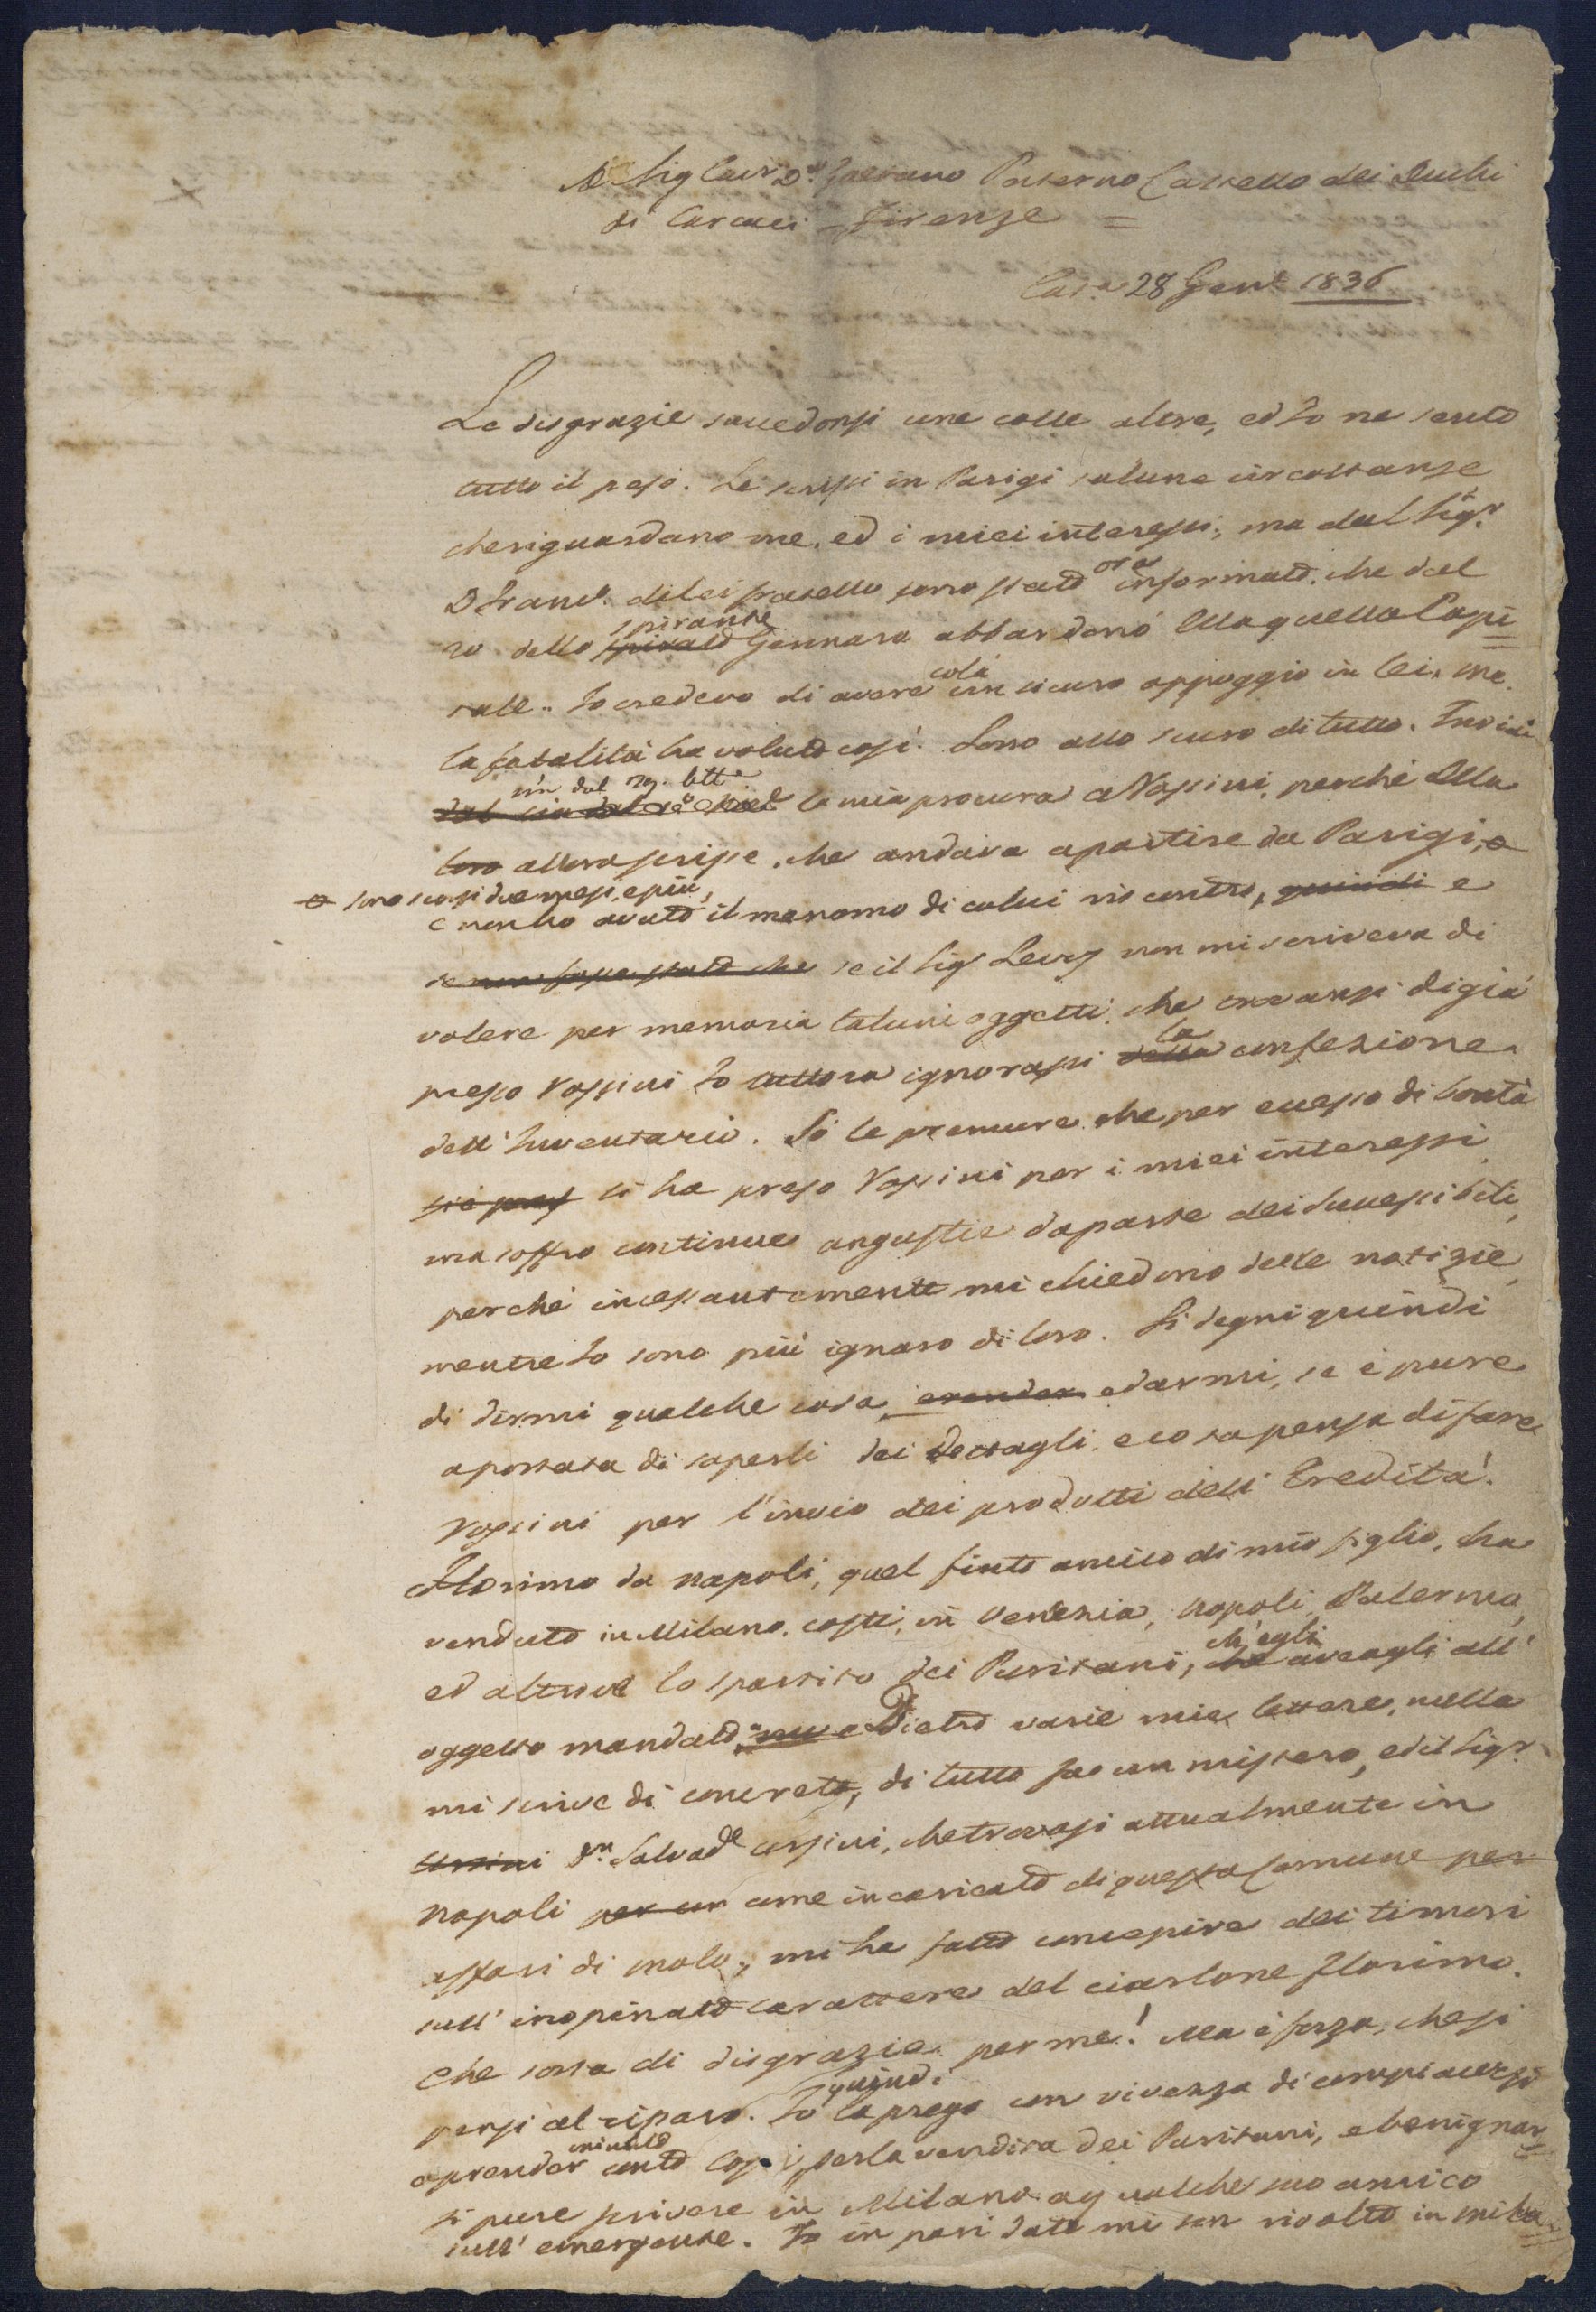 Al Sig Cavr Dn Gaetano Paternò Castello dei Duchi
di Carcaci - Firenze =
Cata 28 Genn 1836
Le disgrazie succedonsi une colle altre, ed Io ne sento
tutto il peso. Le scrissi in Parigi talune circostanze
che riguardano me, ed i miei interessi, ma dal Sigr
D Francо di lei fratello sono stato ora informato, che dal
20 dello spirante Gennaro abbandonò Ella quella Capi=
tale. Io credevo di avere colà un sicuro appoggio in lei, ma
la fatalità ha voluto così. Sono allo scuro di tutto. Inviai
sin dal 29 la mia procura a Rossini, perchè Ella
allora scrisse, che andava a partire da Parigi,
sono scorsi due mesi, e più,
e non ho avuto il menomo di colui riscontro, quindi e
se il Sig Levys non mi scriveva di
volere per memoria taluni oggetti, che trovansi digià
presso Rossini Io tuttora ignorassi la confezione
dell'Inventario. Sò le premure che per eccesso di bontà
si ha preso Rossini per i miei interessi,
ma soffro continue angustie da parte dei Successibili,
perchè incessantemente mi chiedono delle notizie,
mentre Io sono più ignaro di loro. Si degni quindi
di dirmi qualche cosa, e darmi, se è pure
a portata di saperli dei dettagli, e cosa pensa di fare
Rossini per l'invio dei prodotti dell'Eredità.
Florimo da Napoli, quel finto amico di mio figlio, ha
venduto in Milano, costì, in Venezia, Napoli, Palermo,
ed altrove lo spartito dei Puritani, ch'egli aveagli all'
oggetto mandato. Dietro varie mie lettere, nulla
mi scrive di concreto, di tutto fa un mistero, ed il Sigr
Dn Salvade ursini, che trovasi attualmente in
Napoli per un come incaricato di questa Comune per
affari di molo, mi ha fatto concepire dei timori
sull'inopinato carattere del ciarlone Florimo.
Che sorta di disgrazie per me! Ma è forza, che si
pensi al riparo. Io quindi la prego con vivezza di compiacersi
a prender minuto conto costì, per la vendita dei Puritani, e benignar=
si pure scrivere in Milano a qualche suo amico
sull'emergente. Io in pari data mi son rivolto in Mila=